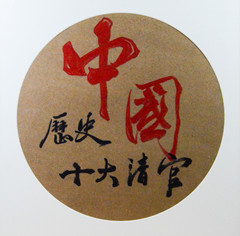 中國
歷史
十大清官